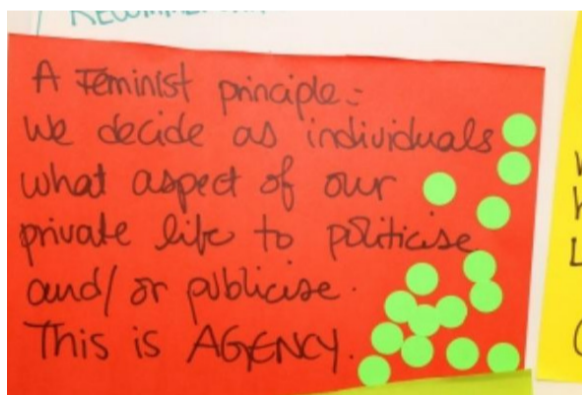 A Feminist principle:
We decide as individuals
what aspect of our
private life to politicise
and/or publicise.
This is AGENCY.